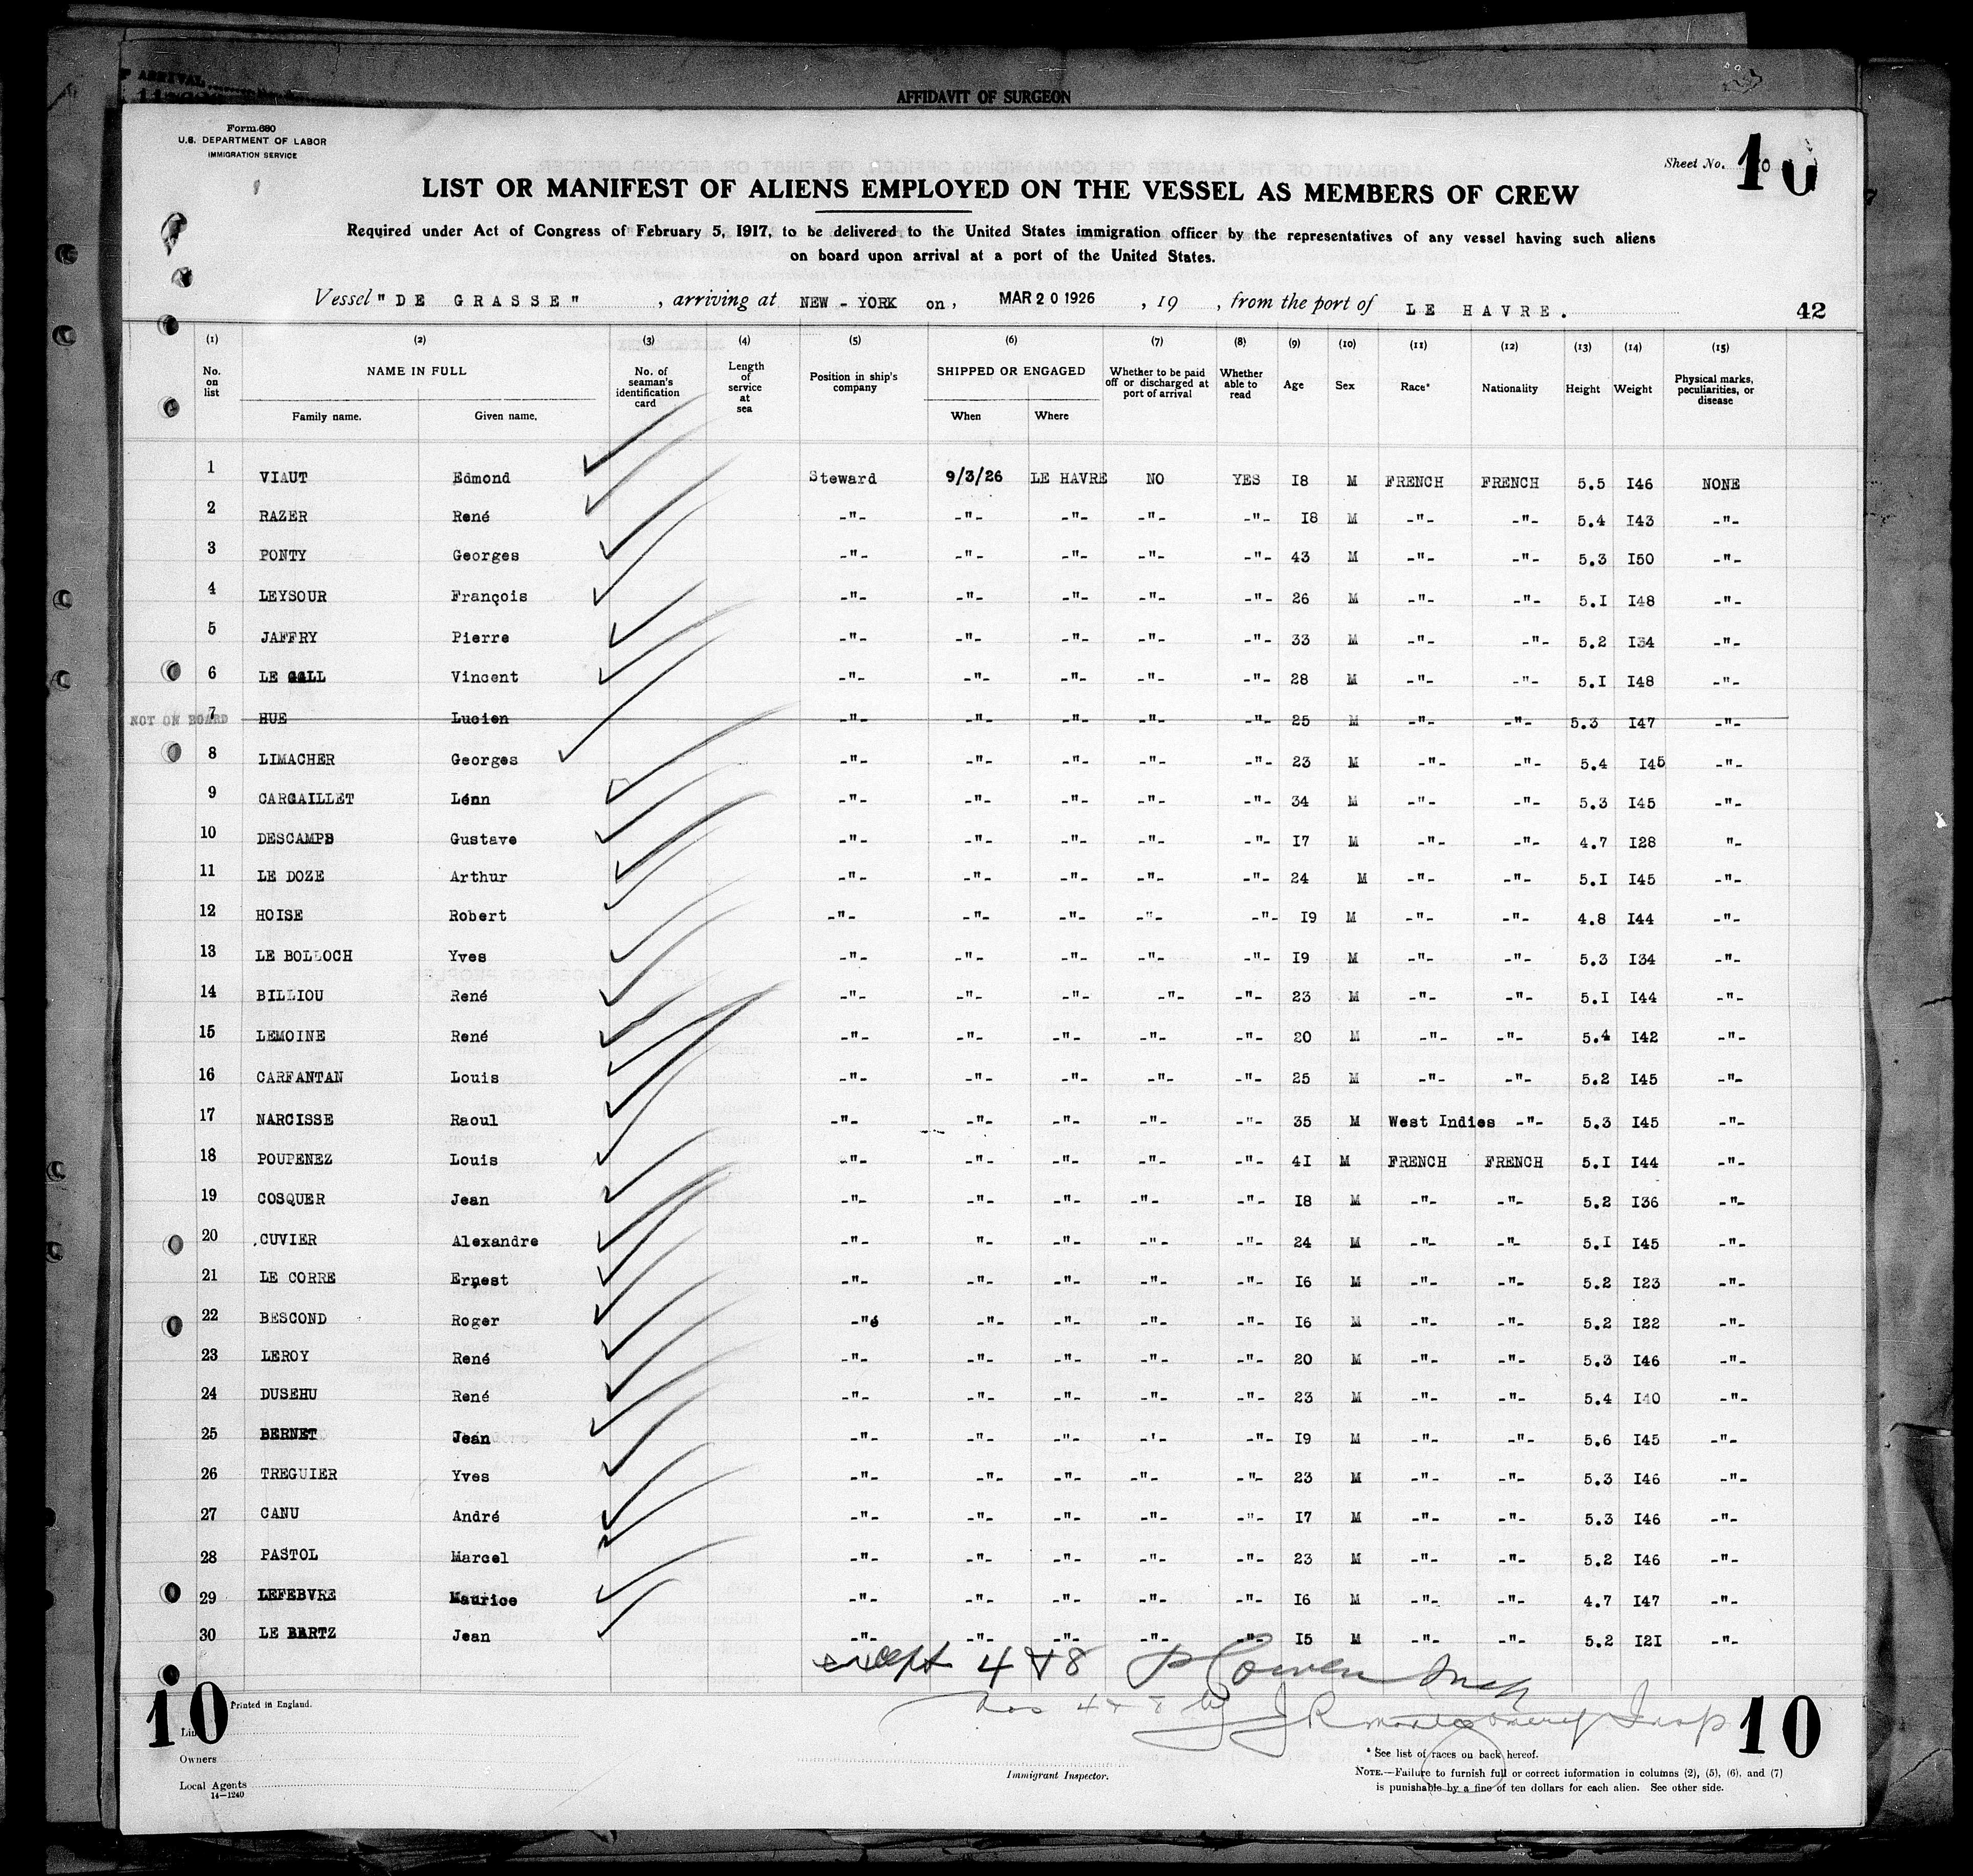 ARRIVAL
AFFIDAVIT OF SURGEON
Form 680
U.S. DEPARTMENT OF LABOR
IMMIGRATION SERVICE
Sheet No. 10
10
LIST OR MANIFEST OF ALIENS EMPLOYED ON THE VESSEL AS MEMBERS OF CREW
Required under Act of Congress of February 5, 1917, to be delivered to the United States immigration officer by the representatives of any vessel having such aliens
on board upon arrival at a port of the United States.
Vessel "DE GRASSE" , arriving at NEW - YORK on, MAR 20 1926 , 19 , from the port of LE HAVRE. 42
(1) (2) (3) (4) (5) (6) (7) (8) (9) (10) (11) (12) (13) (14) (15)
No. on list NAME IN FULL No. of seaman's identification card Length of service at sea Position in ship's company SHIPPED OR ENGAGED Whether to be paid off or discharged at port of arrival Whether able to read Age Sex Race* Nationality Height Weight Physical marks, peculiarities, or disease
Family name. Given name. When Where
1 VIAUT Edmond Steward 9/3/26 LE HAVRE NO YES I8 M FRENCH FRENCH 5.5 I46 NONE
2 RAZER René -"- -"- -"- -"- -"- I8 M -"- -"- 5.4 I43 -"-
3 PONTY Georges -"- -"- -"- -"- -"- 43 M -"- -"- 5.3 I50 -"-
4 LEYSOUR François -"- -"- -"- -"- -"- 26 M -"- -"- 5.I I48 -"-
5 JAFFRY Pierre -"- -"- -"- -"- -"- 33 M -"- -"- 5.2 I34 -"-
6 LE GALL Vincent -"- -"- -"- -"- -"- 28 M -"- -"- 5.I I48 -"-
NOT ON BOARD 7 HUE Lucien -"- -"- -"- -"- -"- 25 M -"- -"- 5.3 I47 -"-
8 LIMACHER Georges -"- -"- -"- -"- -"- 23 M -"- -"- 5.4 I45 -"-
9 CARGAILLET Léon -"- -"- -"- -"- -"- 34 M -"- -"- 5.3 I45 -"-
10 DESCAMPS Gustave -"- -"- -"- -"- -"- I7 M -"- -"- 4.7 I28 "-
11 LE DOZE Arthur -"- -"- -"- -"- -"- 24 M -"- -"- 5.I I45 -"-
12 HOISE Robert -"- -"- -"- -"- -"- I9 M -"- -"- 4.8 I44 -"-
13 LE BOLLOCH Yves -"- -"- -"- -"- -"- I9 M -"- -"- 5.3 I34 -"-
14 BILLIOU René -"- -"- -"- -"- -"- 23 M -"- -"- 5.I I44 -"-
15 LEMOINE René -"- -"- -"- -"- -"- 20 M -"- -"- 5.4 I42 -"-
16 CARFANTAN Louis -"- -"- -"- -"- -"- 25 M -"- -"- 5.2 I45 -"-
17 NARCISSE Raoul -"- -"- -"- -"- -"- 35 M West Indies -"- 5.3 I45 -"-
18 POUPENEZ Louis -"- -"- -"- -"- -"- 4I M FRENCH FRENCH 5.I I44 -"-
19 COSQUER Jean -"- -"- -"- -"- -"- I8 M -"- -"- 5.2 I36 -"-
20 CUVIER Alexandre -"- "- -"- -"- -"- 24 M -"- -"- 5.I I45 -"-
21 LE CORRE Ernest -"- -"- -"- -"- -"- I6 M -"- -"- 5.2 I23 -"-
22 BESCOND Roger -"é -"- -"- -"- -"- I6 M -"- -"- 5.2 I22 -"-
23 LEROY René -"- -"- -"- -"- -"- 20 M -"- -"- 5.3 I46 -"-
24 DUSEHU René -"- -"- -"- -"- -"- 23 M -"- -"- 5.4 I40 -"-
25 BERNET Jean -"- -"- -"- -'- -"- I9 M -"- -"- 5.6 I45 -"-
26 TREGUIER Yves -"- -"- -"- -"- -"- 23 M -"- -"- 5.3 I46 -"-
27 CANU André -"- -"- -"- -"- -"- I7 M -"- -"- 5.3 I46 -"-
28 PASTOL Marcel -"- -"- -"- -"- -"- 23 M -"- -"- 5.2 I46 -"-
29 LEFEBVRE Maurice -"- -"- -"- -"- -"- I6 M -"- -"- 4.7 I47 -"-
30 LE BARTZ Jean -"- -"- -"- -"- -"- I5 M -"- -"- 5.2 I2I -"-
except 4 & 8 P Cowen Insp
nos 4 + 8 by J R Montgomery Insp
10 Printed in England. 10
Line
Owners
Local Agents
14—1240
Immigrant Inspector.
* See list of races on back hereof.
NOTE.—Failure to furnish full or correct information in columns (2), (5), (6), and (7)
is punishable by a fine of ten dollars for each alien. See other side.